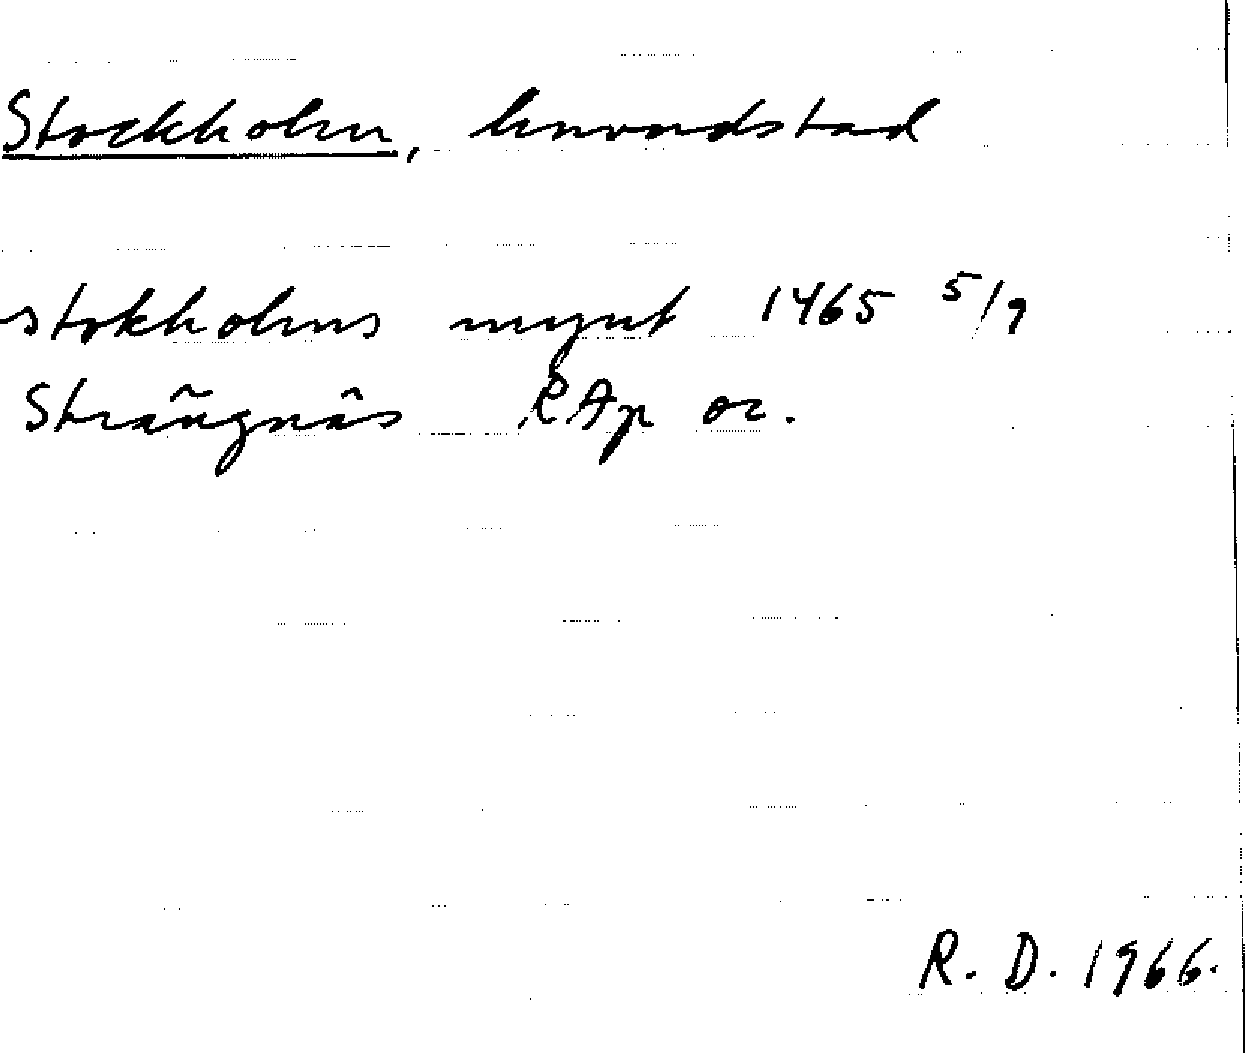 Stockholm, huvudstad
stokholms mynt 1465 5/9
Strängnäs RAp or.
R. D. 1966.